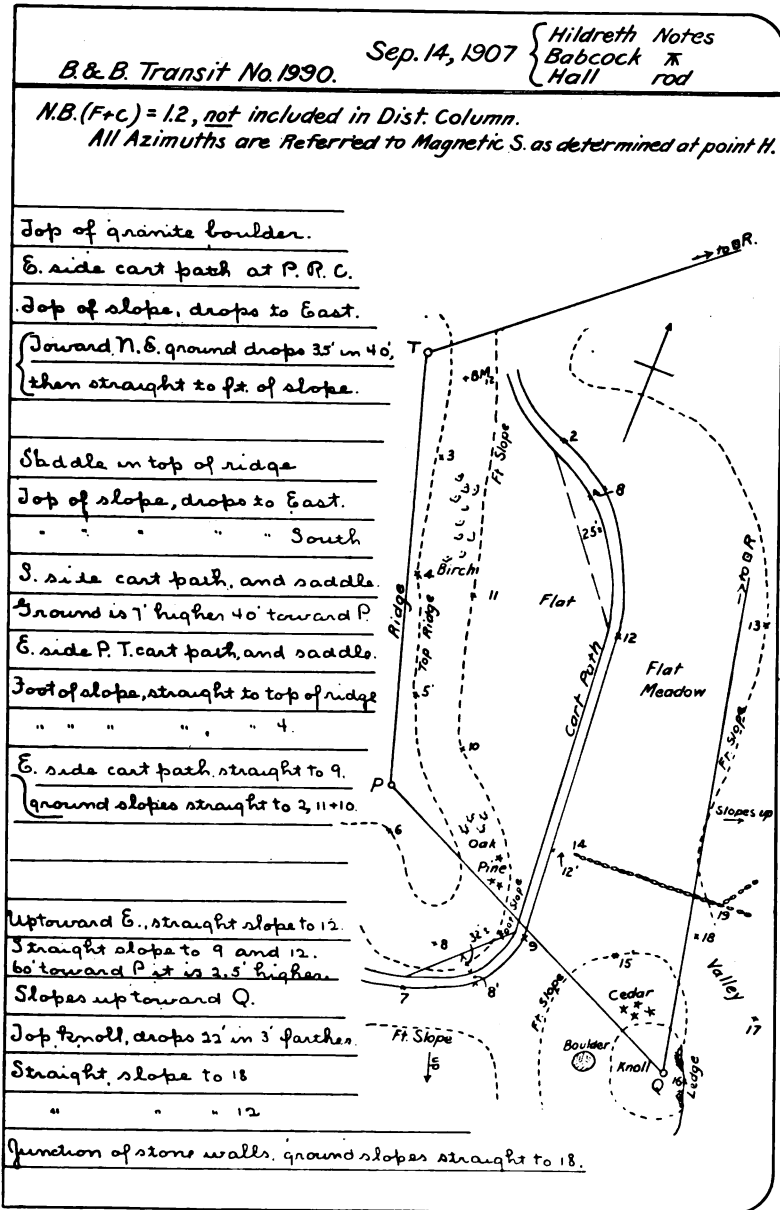 B.&B. Transit No.1990.
Sep.14,1907
Hildreth Notes
Babcock ⊼
Hall rod
N.B.(F+C) = 1.2, not included in Dist. Column.
All Azimuths are Referred to Magnetic S. as determined at point H.
Top of granite boulder.
E. side cart path at P. R. C.
Top of slope, drops to East.
Toward N.E. ground drops 35' in 40',
then straight to ft. of slope.
Saddle in top of ridge
Top of slope, drops to East.
" " " " " South
S. side cart path, and saddle.
Ground is 7' higher 40' toward P.
E. side P. T. cart path, and saddle.
Foot of slope, straight to top of ridge
" " " " " 4.
E. side cart path straight to 9.
ground slopes straight to 2, 11+10.
Up toward E., straight slope to 12.
Straight slope to 9 and 12.
60' toward P it is 2.5' higher.
Slopes up toward Q.
Top knoll, drops 22' in 3' farther.
Straight slope to 18
" " " 12
Junction of stone walls, ground slopes straight to 18.
→ to BR.
T
BM
12
3
Ft Slope
2
8
25'
Birch
4
11
Flat
Ridge
Top Ridge
5
12
Cart Path
Flat
Meadow
→ to BR
13
10
P
6
Ft. Slope
Slopes up
Oak
Pine
12'
14
19
Foot Slope
8
9
18
32'±
7
8'
15
Valley
Ft Slope
Cedar
17
Ft. Slope
up
Boulder
Knoll
Q
16
Ledge